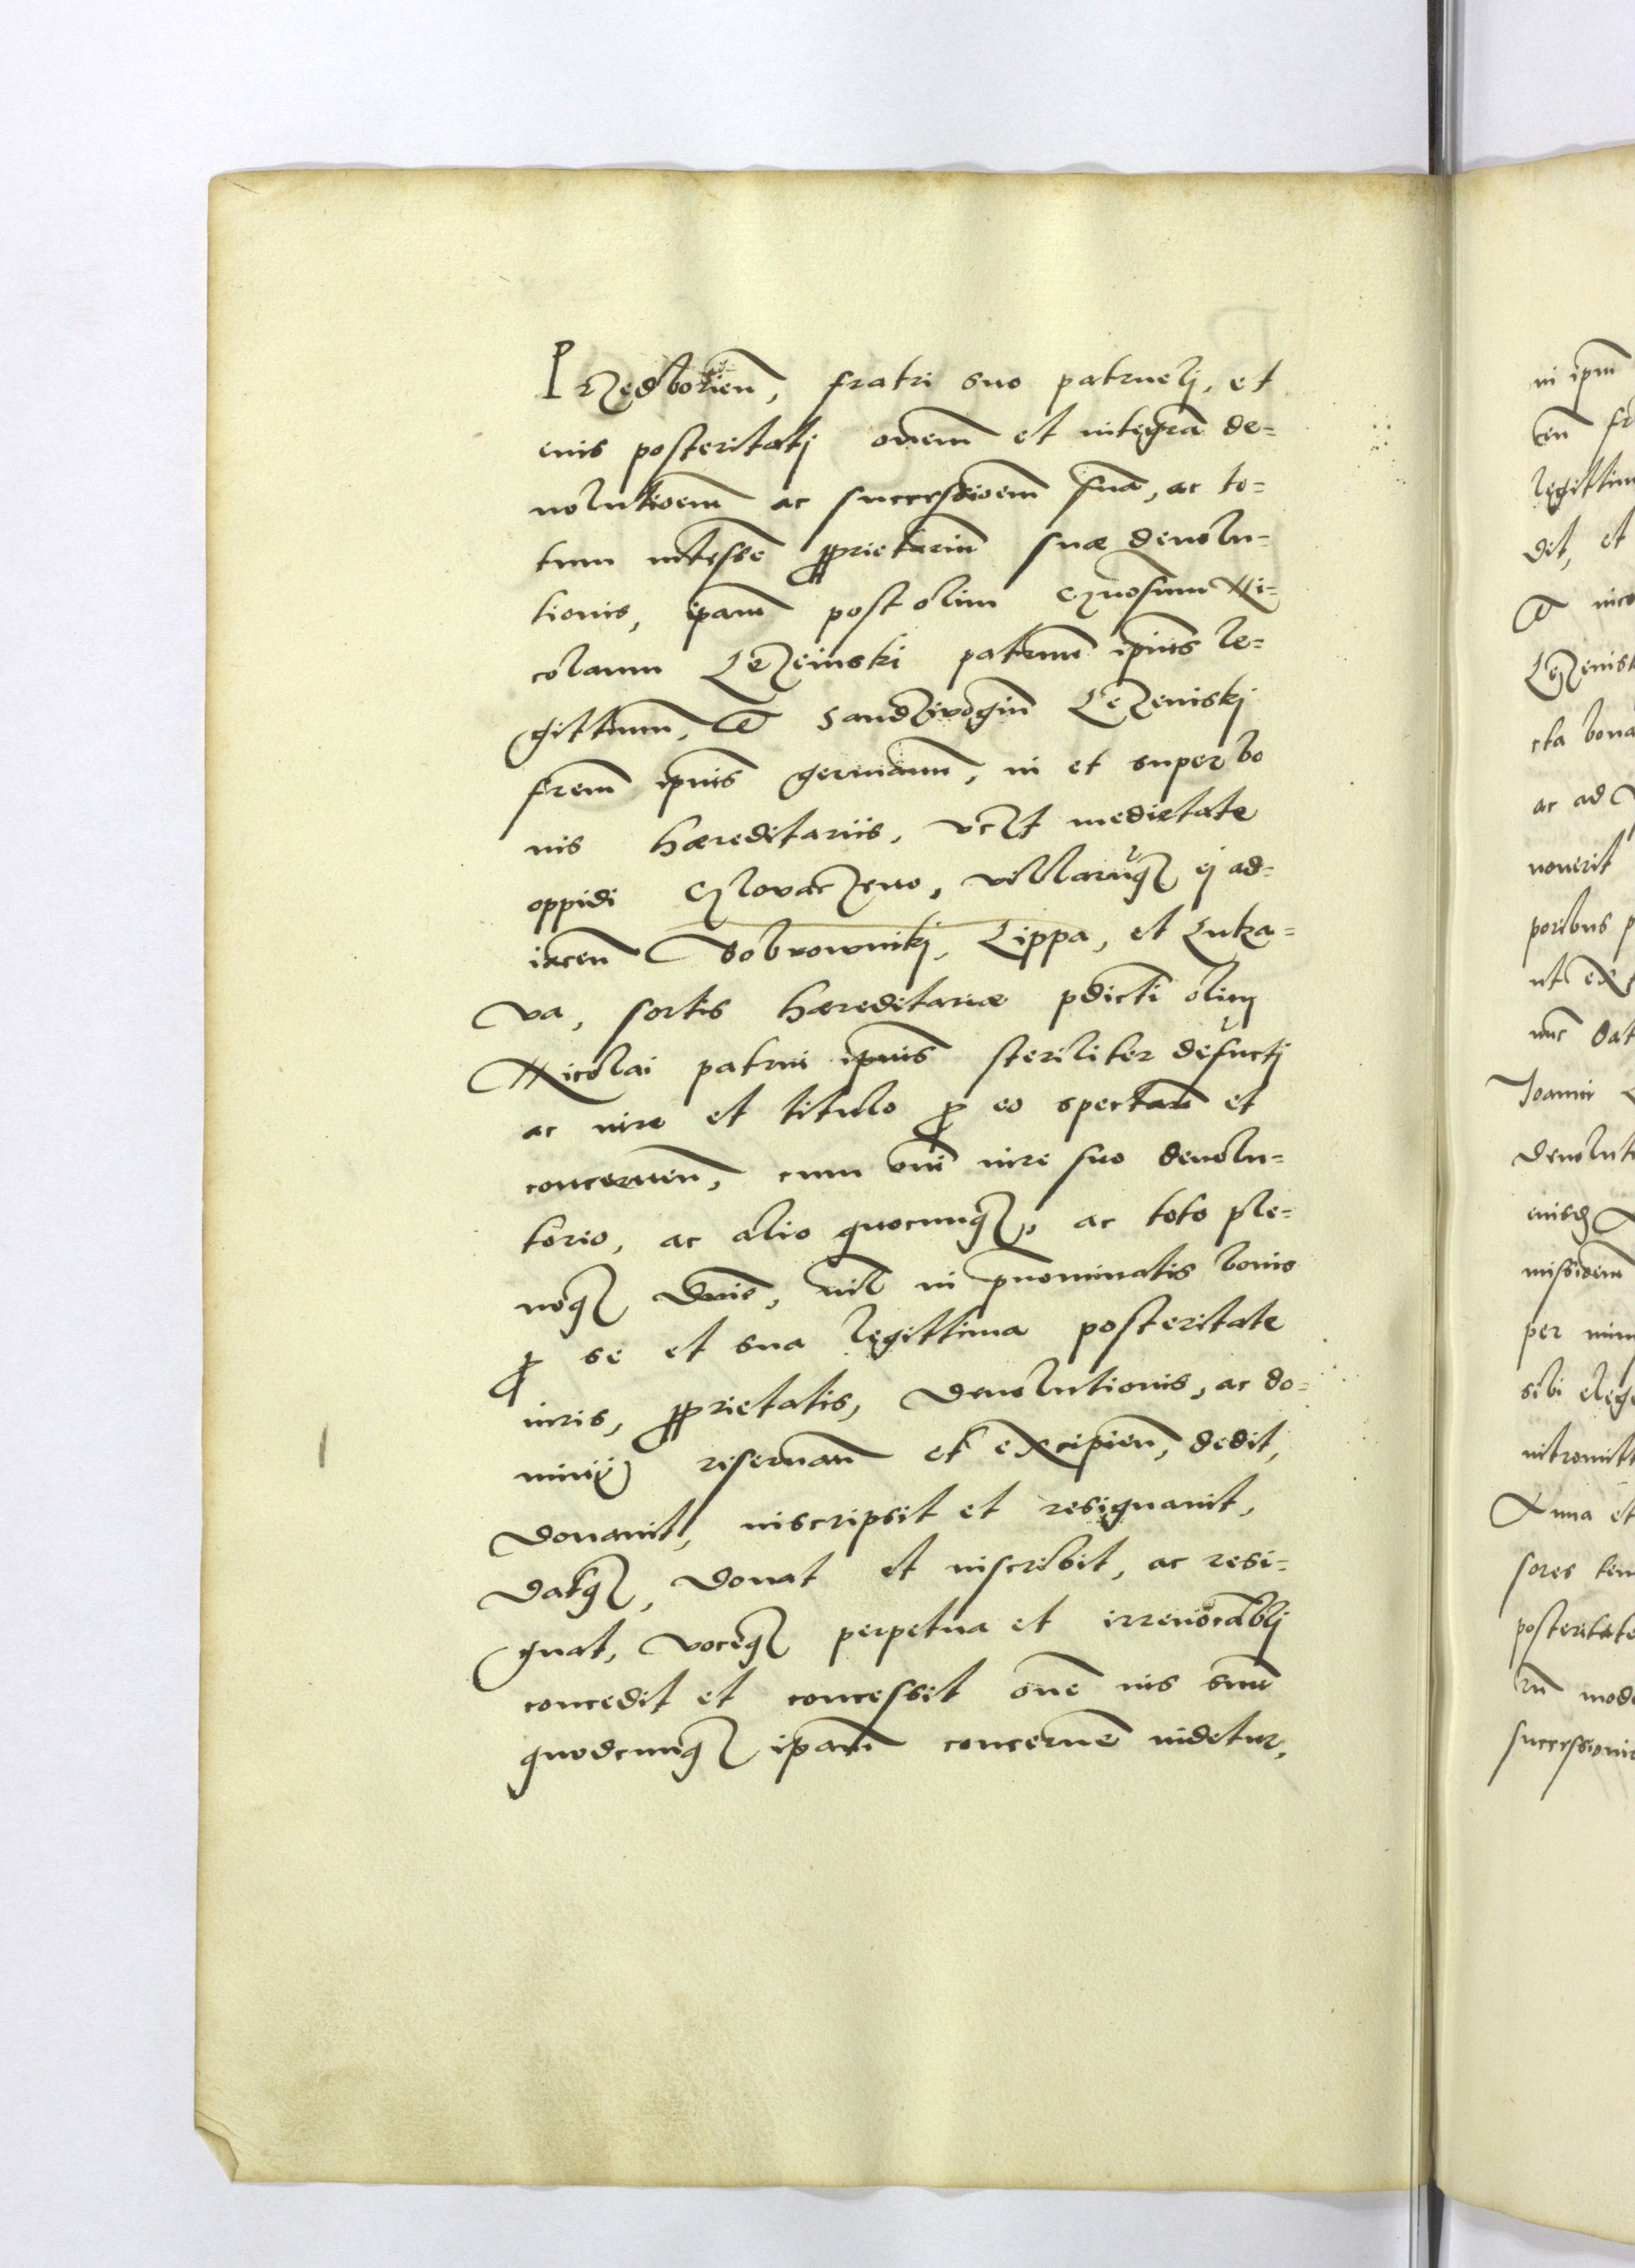 Przedborien̄, fratri suo patruelj, et
eius posteritatj om̄em et integrā de=
uolutioem̄ ac successioem̄ suā, ac to=
tum int̄esse ꝓprietariū suae deuolu=
tionis, ip̄am post olim Gn̄osum Ni=
colaum Lezenski patruū ip̄ius le=
gittimū, et Sandziuogiū Lezenskj
frēm ip̄ius germanū, in et super bo
nis haereditariis, vc̄lt medietate
oppidi Glovaczewo, villarūq₃ ej ad=
iacen̄ Dobrownikj, Lippa, et Luka=
va, sortis haereditariae p̄dicti olim
Nicolai patrui ip̄ius steriliter defūctj
ac iure et titulo ꝓ eo spectan̄ et
concernen̄, cum om̄i iure suo deuolu=
torio, ac alio quocunq₃, ac toto ple=
noq₃ dn̄io, nil in p̄nominatis bonis
ꝓ se et sua legittima posteritate
iuris, ꝓprietatis, deuolutionis, ac do=
minij reseruan̄ et excipien̄, dedit,
donauit, inscripsit et resignauit,
datq₃, donat et inscribit, ac resi=
gnat, voceq₃ perpetua et irreuocāblj
concedit et concessit om̄e ius suū
quodcunq₃ ip̄am concernē uidetur,
in ip̄m
legittim
dit, et
Lezensk
cta bona
ac ad
nouerit
poribus p
ut ex
nūc dat
Joanni
deuoluti
eiusq₃
missioem̄
per min
sibi elege
intromitt
Anna et
sores ten
posteritate
rū modo
successionis